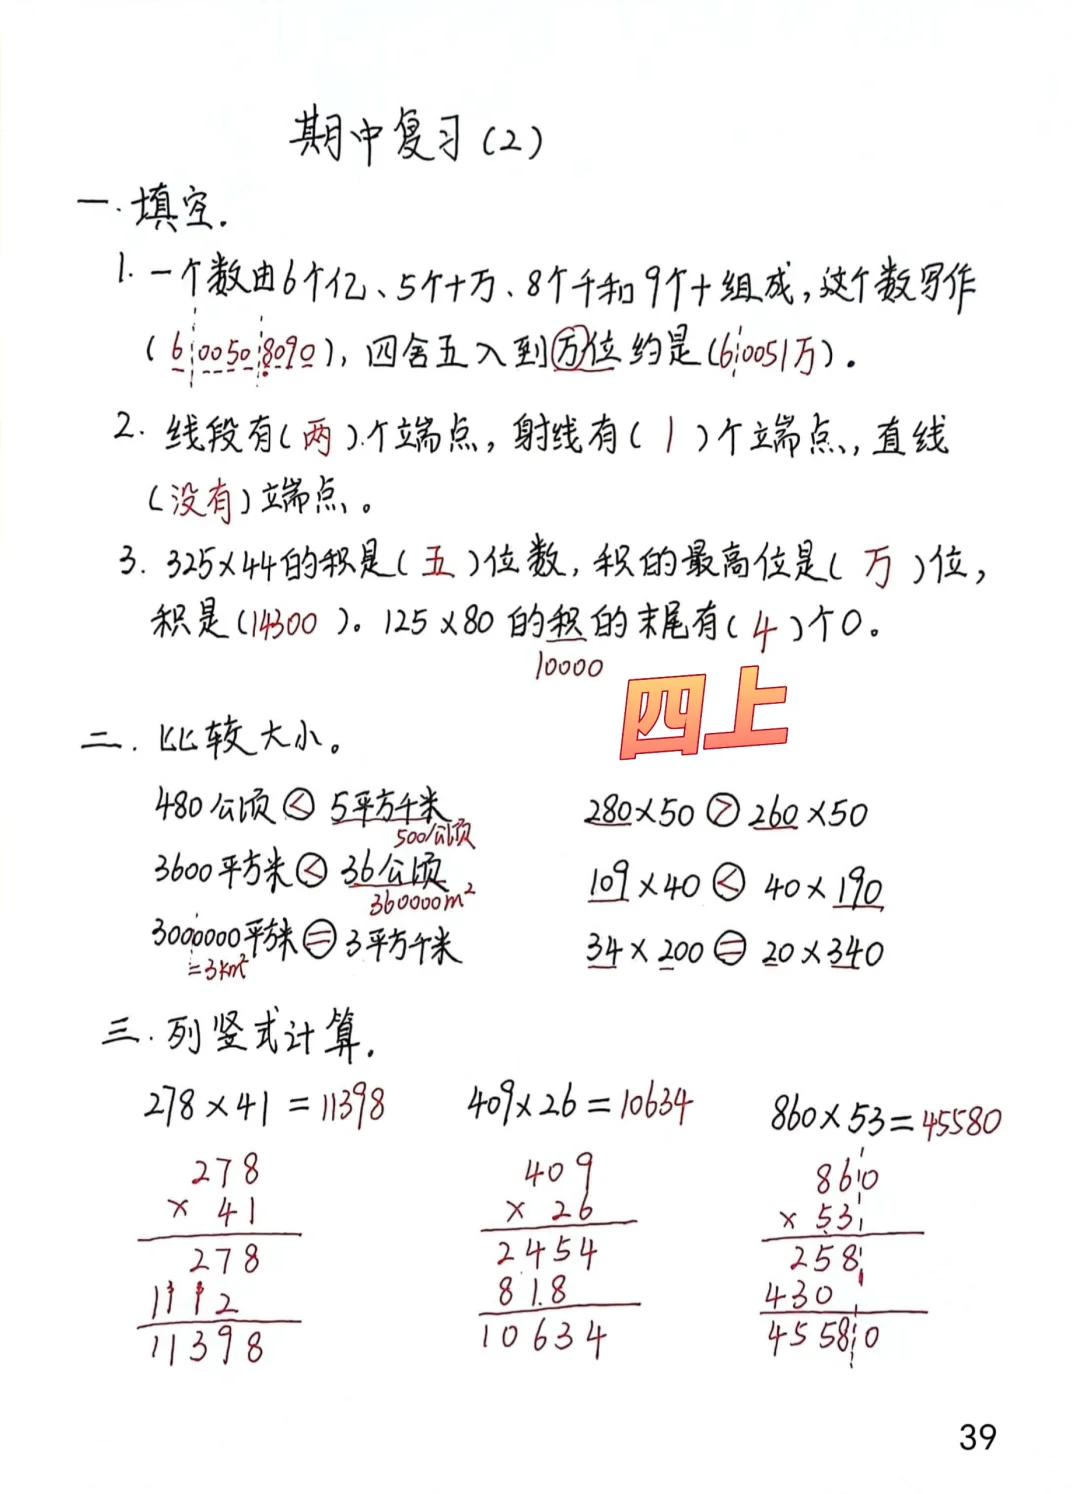 期中复习(2)
一.填空.
1.一个数由6个亿、5个十万、8个千和9个十组成,这个数写作
(600508090),四舍五入到万位约是(60051万).
2.线段有(两)个端点,射线有(1)个端点,直线
(没有)端点。
3.325×44的积是(五)位数,积的最高位是(万)位,
积是(14300)。125×80的积的末尾有(4)个0。
10000
四上
二.比较大小。
480公顷<5平方千米 280×50>260×50
500公顷
3600平方米<36公顷 109×40<40×190
360000m²
3000000平方米=3平方千米 34×200=20×340
=3km²
三.列竖式计算.
278×41=11398 409×26=10634 860×53=45580
278 409 860
× 41 × 26 × 53
278 2454 258
1112 818 430
11398 10634 45580
39